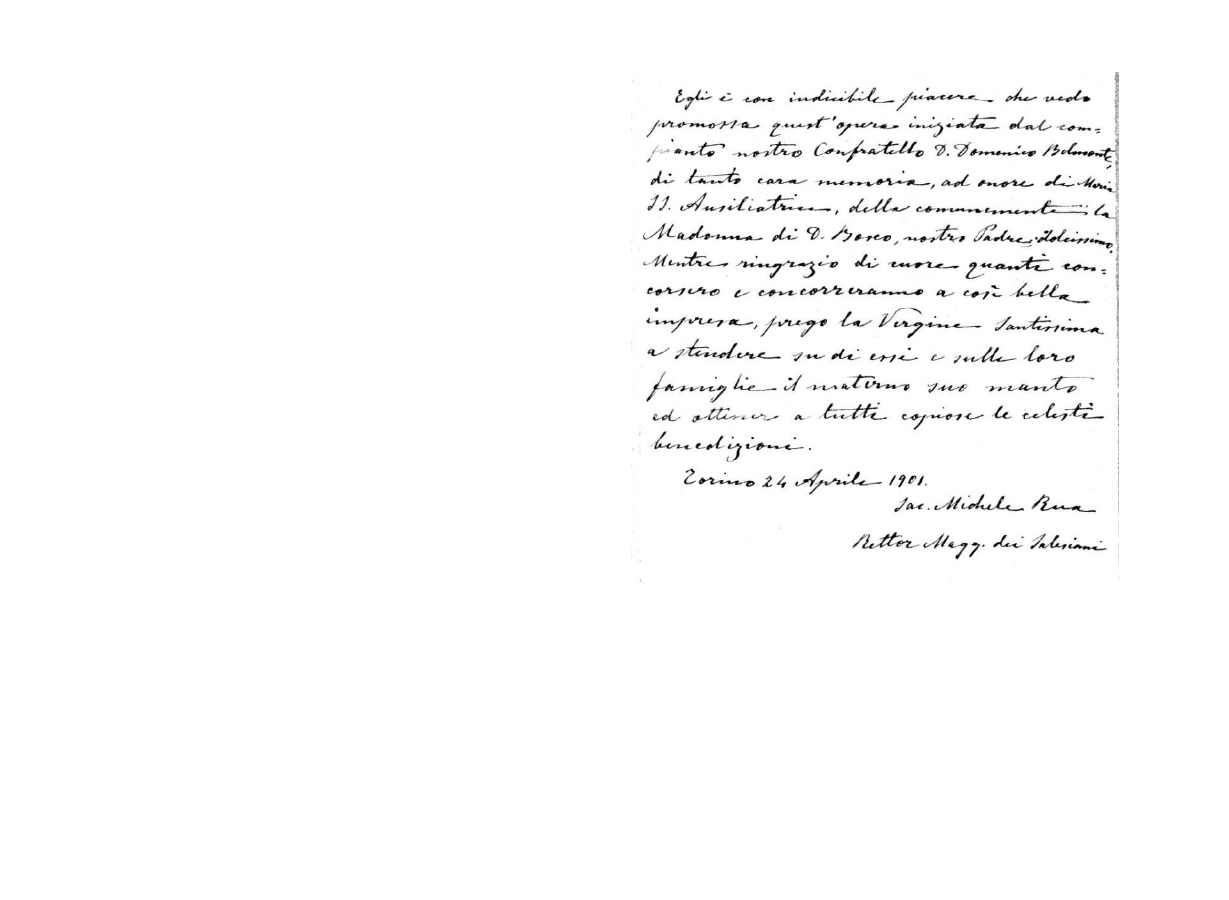 Egli è con indicibile piacere che vedo
promossa quest'opera iniziata dal com=
pianto nostro Confratello D. Domenico Belmonte,
di tanto cara memoria, ad onore di Maria
SS. Ausiliatrice, della comunemente la
Madonna di D. Bosco, nostro Padre dolcissimo.
Mentre ringrazio di cuore quanti con=
corsero e concorreranno a così bella
impresa, prego la Vergine Santissima
a stendere su di essi e sulle loro
famiglie il materno suo manto
ed ottener a tutti copiose le celesti
benedizioni.
Torino 24 Aprile 1901.
Sac. Michele Rua
Rettor Magg. dei Salesiani